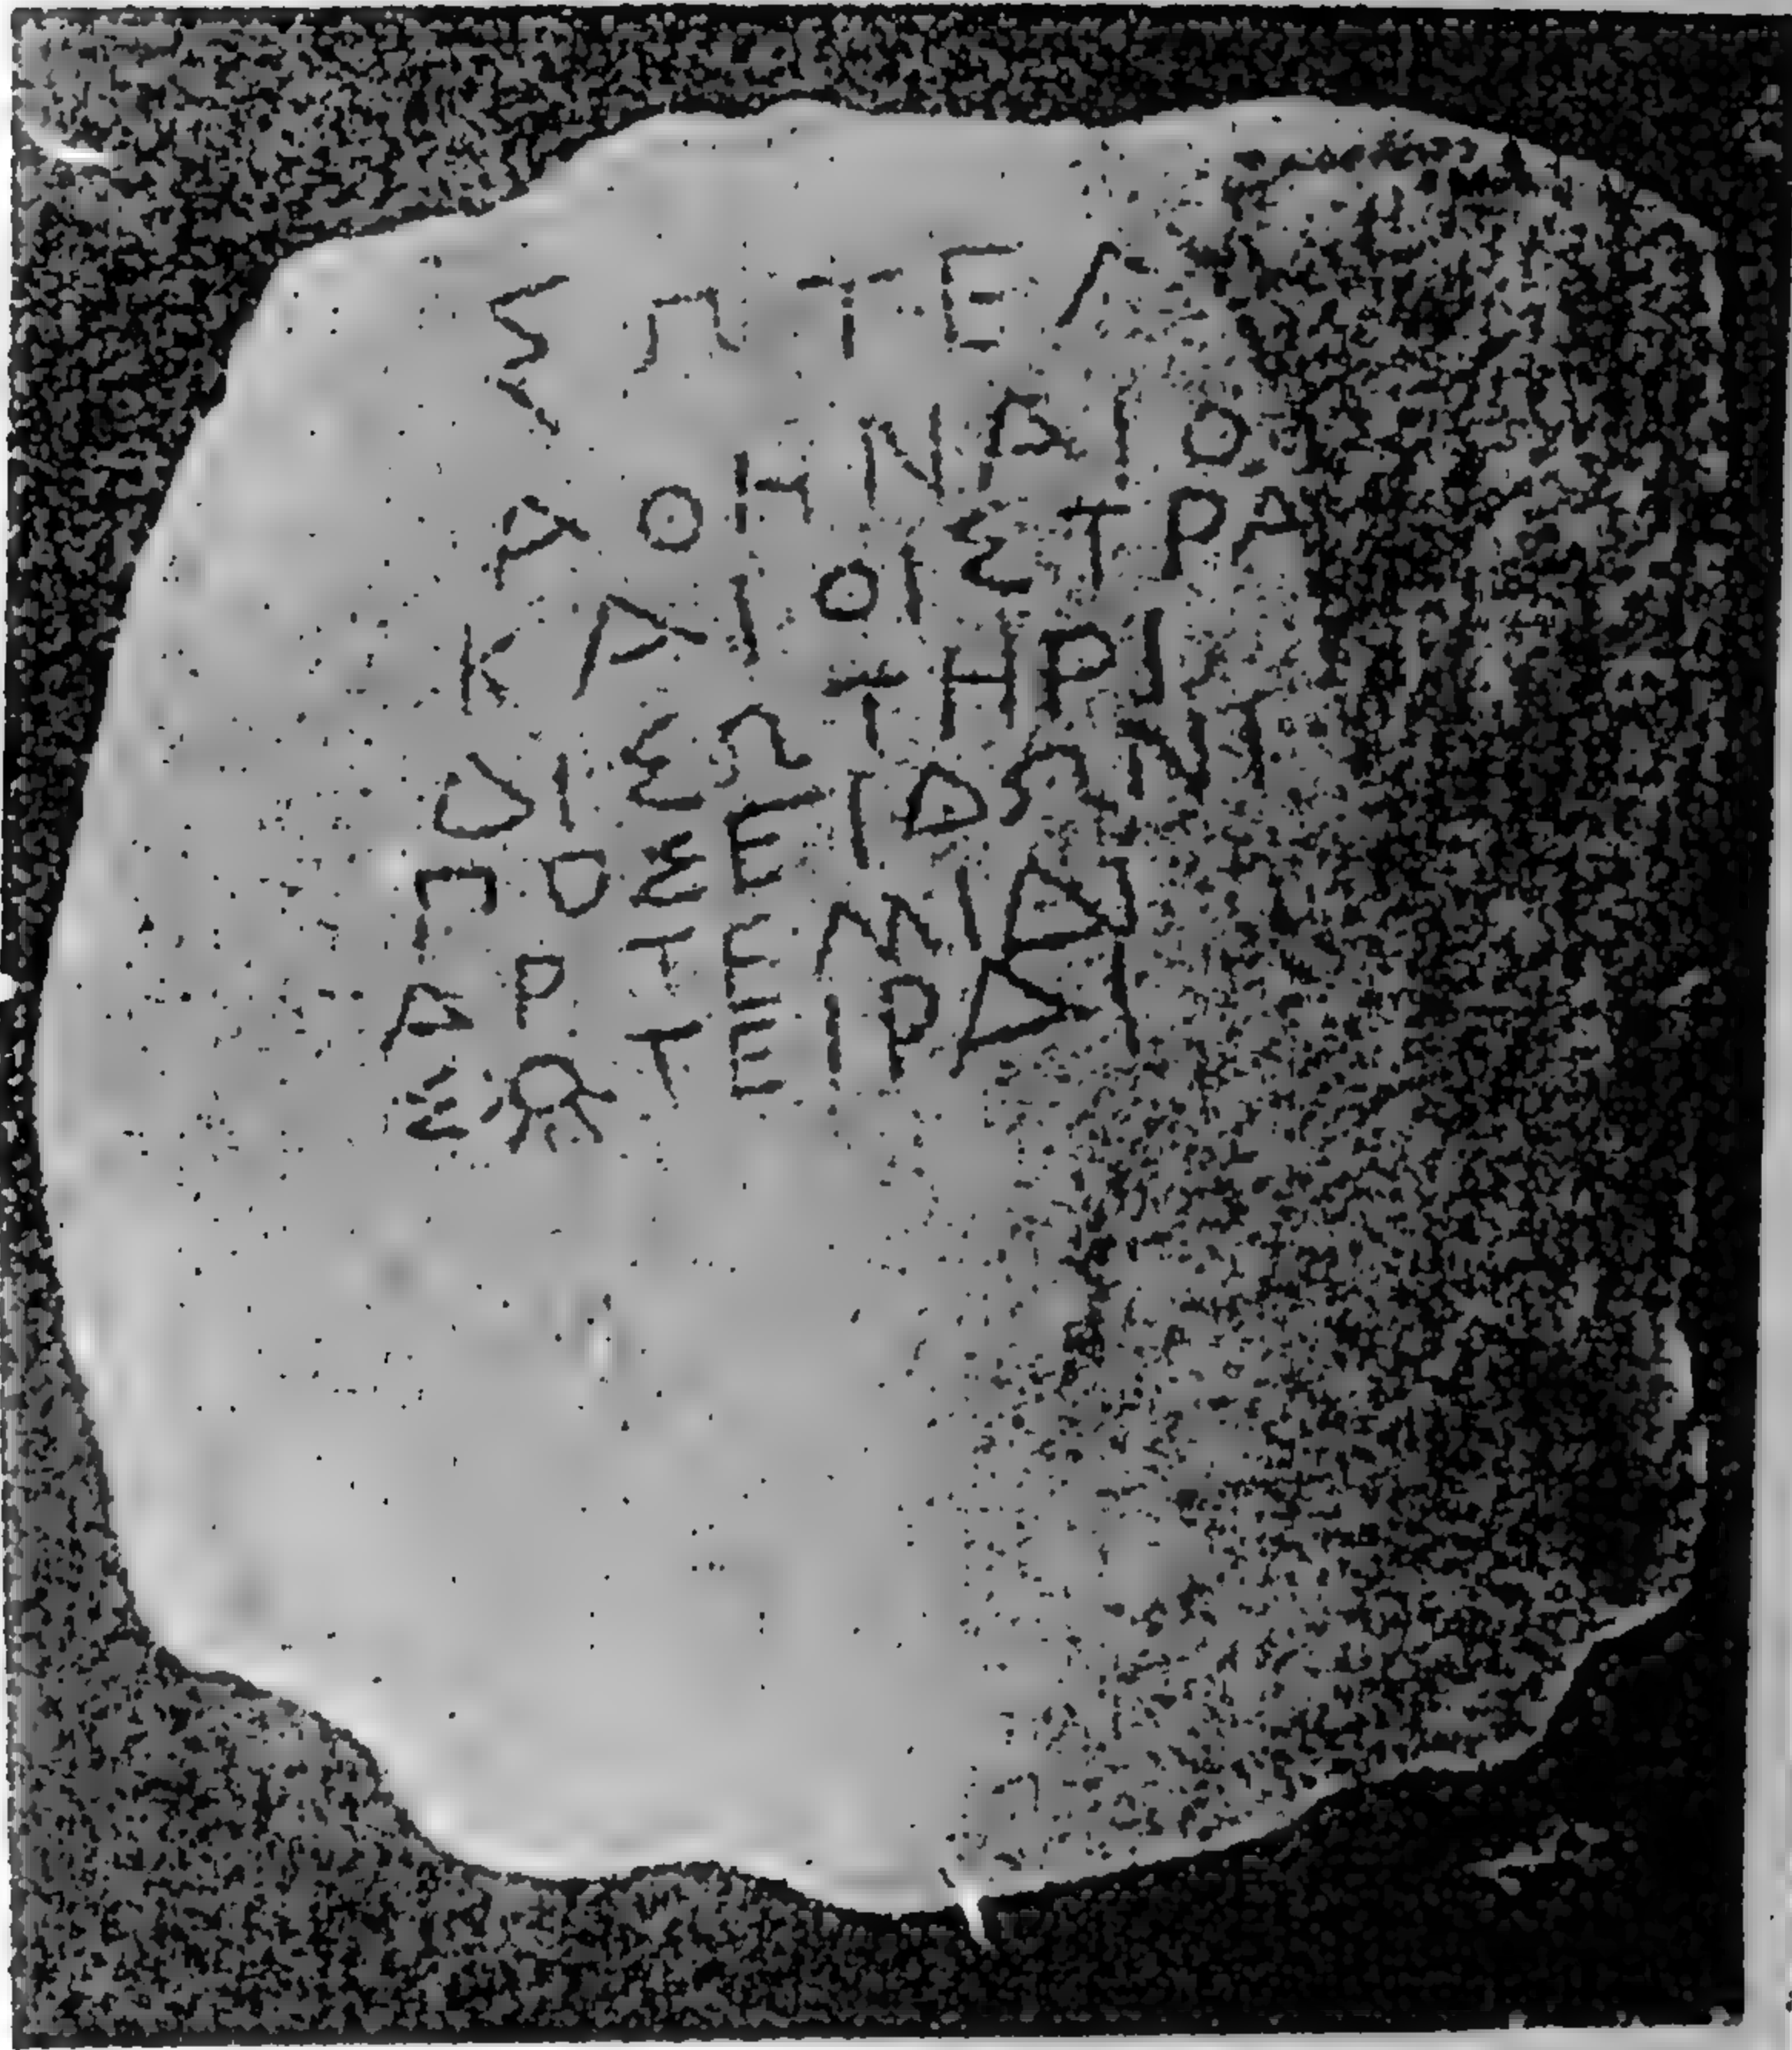 ΣΠΤΕΛ
ΑΘΗΝΑΙΟ
ΚΑΙΟΙΣΤΡΑ
ΔΙΣΩΤΗΡΙ
ΠΟΣΕΙΔΩΝΙ
ΑΡΤΕΜΙΔΙ
ΣΩΤΕΙΡΑΙ